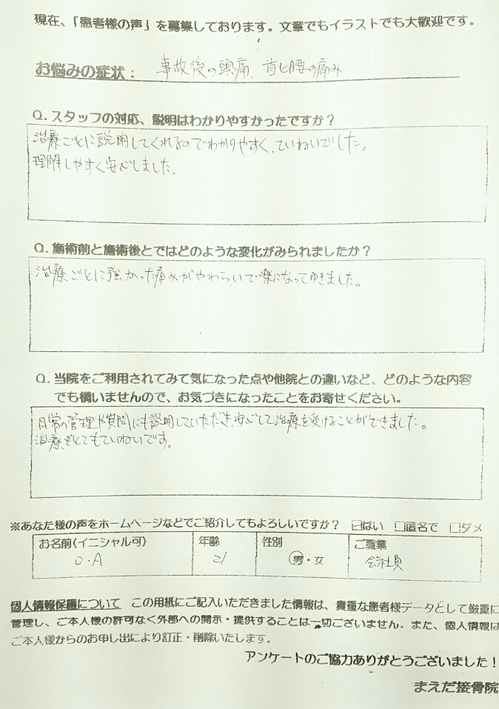 現在、「患者様の声」を募集しております。文章でもイラストでも大歓迎です。
お悩みの症状： 事故後の頭痛、首と腰の痛み
Q. スタッフの対応、説明はわかりやすかったですか？
治療ごとに説明してくれるのでわかりやすく、ていねいでした。
理解しやすく安心しました。
Q. 施術前と施術後とではどのような変化がみられましたか？
治療ごとに強かった痛みがやわらいで楽になってゆきました。
Q. 当院をご利用されてみて気になった点や他院との違いなど、どのような内容
でも構いませんので、お気づきになったことをお寄せください。
日常の管理や質問にも説明していただき、安心して治療を受けることができました。
治療もとてもていねいです。
※あなた様の声をホームページなどでご紹介してもよろしいですか？ ☑はい □匿名で □ダメ
お名前(イニシャル可) 年齢 性別 ご職業
O.A 21 男・女 会社員
個人情報保護について この用紙にご記入いただきました情報は、貴重な患者様データとして厳重に
管理し、ご本人様の許可なく外部への開示・提供することは一切ございません。また、個人情報は
ご本人様からのお申し出により訂正・削除いたします。
アンケートのご協力ありがとうございました！
まえだ接骨院